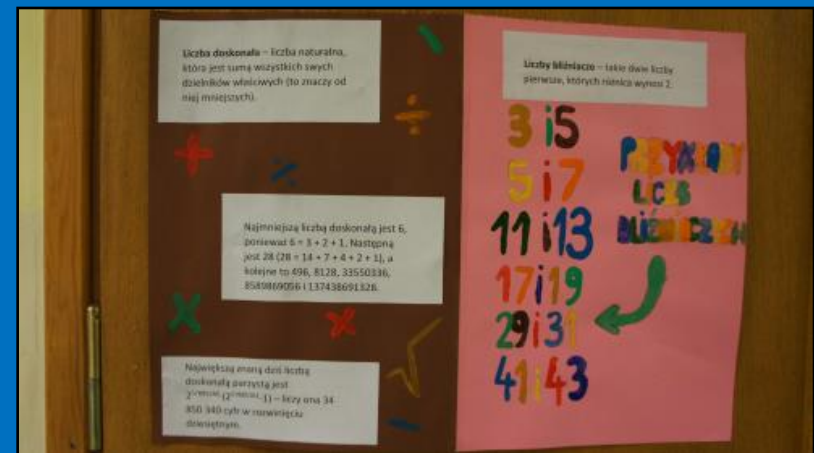 Liczba doskonała – liczba naturalna,
która jest sumą wszystkich swych
dzielników właściwych (to znaczy od
niej mniejszych).
Najmniejszą liczbą doskonałą jest 6,
ponieważ 6 = 3 + 2 + 1. Następną
jest 28 (28 = 14 + 7 + 4 + 2 + 1), a
kolejne to 496, 8128, 33550336,
8589869056 i 137438691328.
Największą znaną dziś liczbą
doskonałą parzystą jest
– liczy ona 34
850 340 cyfr w rozwinięciu
dziesiętnym.
Liczby bliźniacze – takie dwie liczby
pierwsze, których różnica wynosi 2.
3 i 5
5 i 7
11 i 13
17 i 19
29 i 31
41 i 43
PRZYKŁADY
LICZB
BLIŹNIACZYCH